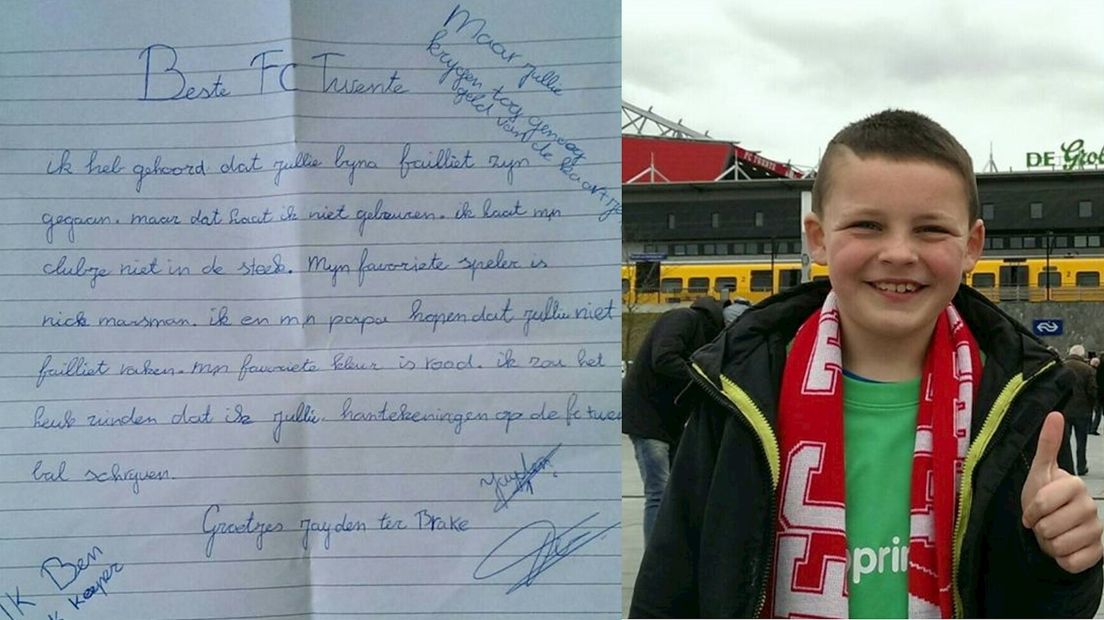 Maar jullie
krygen tog genoeg
geld van de kaartje
Beste FC Twente
ik heb gehoord dat jullie byna failliet zyn
gegaan. maar dat laat ik niet gebeuren. ik laat mijn
clubje niet in de steek. Mijn favoriete speler is
nick marsman. ik en mijn papa hopen dat jullie niet
failliet raken. mijn favoriete kleur is rood. ik zou het
leuk vinden dat ik jullie hantekeningen op de fc twen
bal schryven.
Jayden
Groetjes Jayden ter Brake
IK Ben
keeper
FC TWENTE
DE Grol
NS
FC
prin